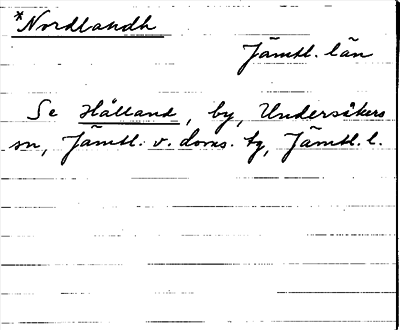 *Nordlandh
Jämtl. län
Se Hålland, by, Undersåkers
sn, Jämtl. v. doms. tg, Jämtl. l.